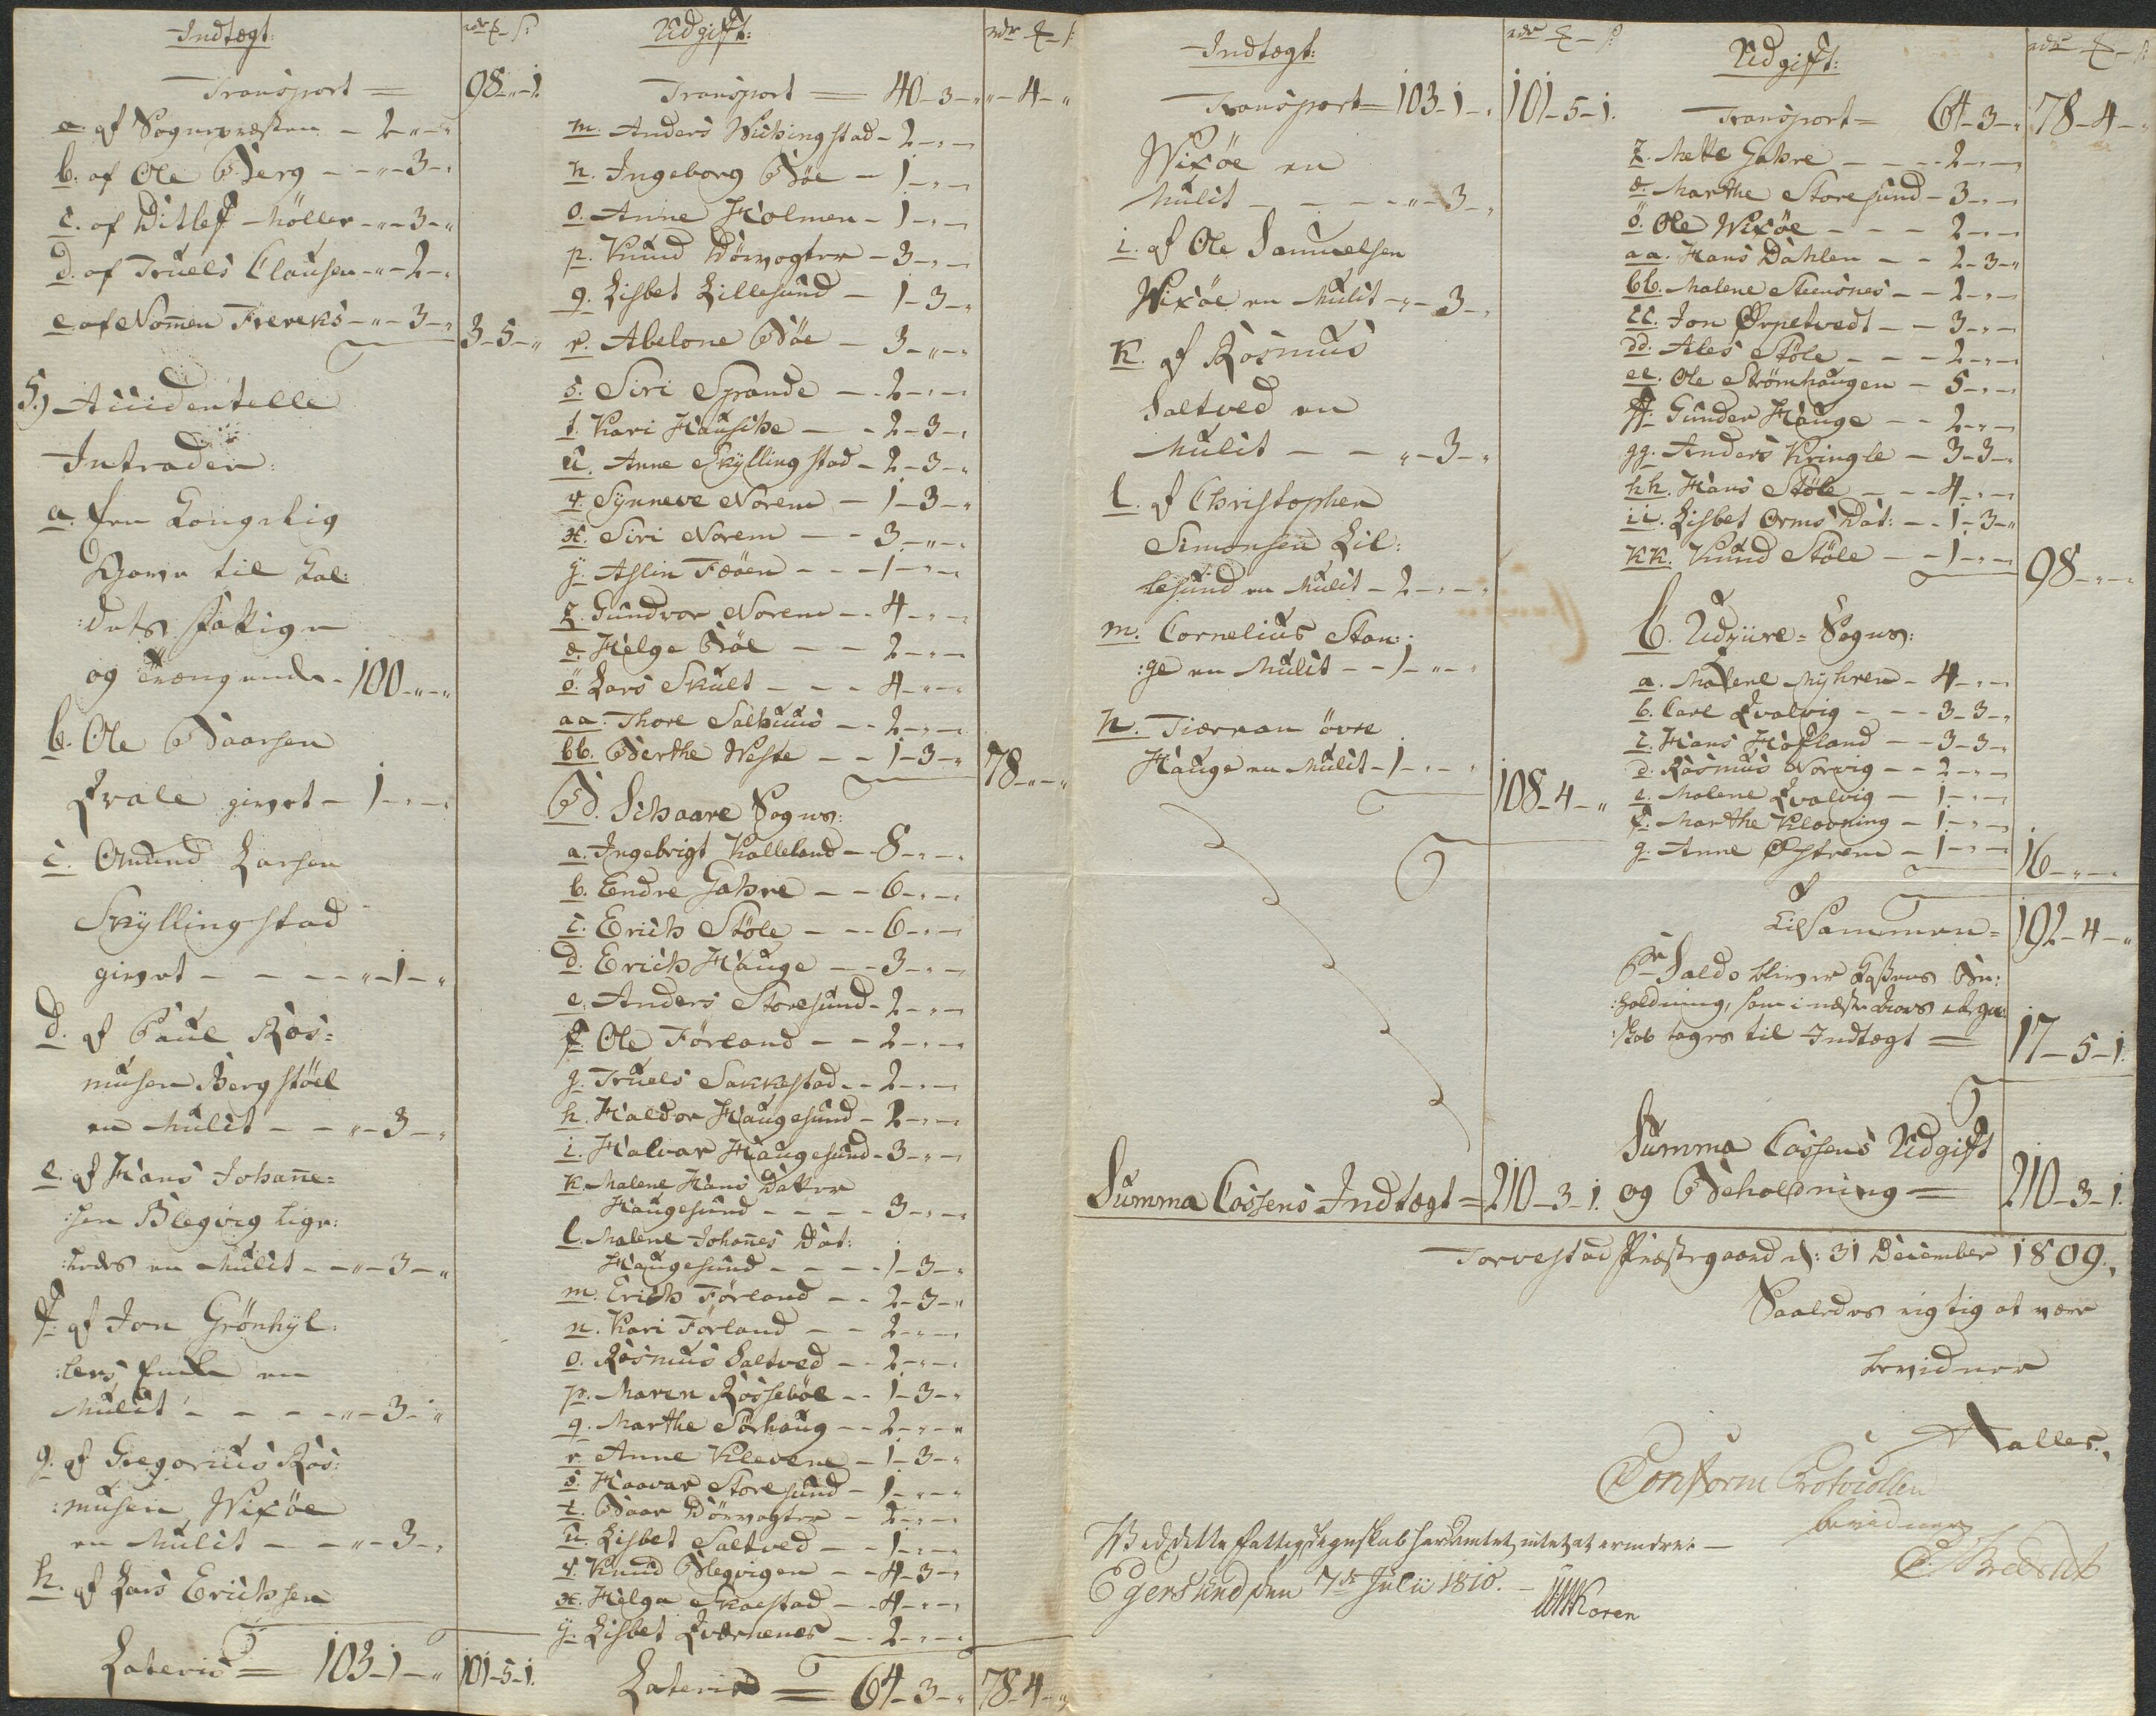 Indtægt:
Transport = 98-"-1.
a. af Sognepræsten - 2-"-"
b. af Ole Berg - - "-3-"
c. af Ditlef Möller - "-3-"
d. af Truels Clausen - "-2-"
e. af Nomen Frereks - "-3-" 3-5-"
5.) Accidentelle
Intrader:
a. fra Kongelig
til Kal:
:dets fattige
og Trængende - 100-"-"
b. Ole Baarsen
Qvale givet - 1-"-"
c. Omund Larsen
Skyllingstad
givet - - - - "-1-"
d. af Paul Ras=
musen Bergstöel
en Mulct - - "-3-"
e. af Hans Johane=
:sen Blegvig lige:
:ledes en Mulct - - "-3-"
f. af Jon Grönhyl:
:lers Enke en
Mulct - - - - "-3-"
g. af Gregorius Ras:
:musen Wixöe
en Mulct - - "-3-"
h. af Lars Erichsen
Lateris = 103-1-" 101-5-1.
Udgift:
Transport = 40-3-" "-4-"
m. Anders Wichingstad - 2-"-"
n. Ingeborg Böe - 1-"-"
o. Anne Holmen - 1-"-"
p. Knud Dörvogter - 3-"-"
q. Lisbet Lillesund - 1-3-"
r. Abelone Böe - 3-"-"
s. Siri Spande - 2-"-"
t. Kari Hauske - - 2-3-"
u. Anne Skyllingstad - 2-3-"
v. Synneve Norem - 1-3-"
x. Siri Norem - - 3-"-"
y. Aslin Fæöen - - - 1-"-"
z. Gundvor Norem - - 4-"-"
æ. Helge Böe - - 2-"-"
ö. Lars Skult - - - 4-"-"
aa. Thore Salhuus - - 2-"-"
bb. Berthe Weste - - 1-3-" 78-"-"
B. Schaare Sogns:
a. Ingebrigt Kalleland - 8-"-"
b. Endre Gahre - - 6-"-"
c. Erich Stöle - - 6-"-"
d. Erich Hauge - - 3-"-"
e. Anders Storesund - 2-"-"
f. Ole Förland - - 2-"-"
g. Truels Sakkestad - - 2-"-"
h. Haldor Haugesund - 2-"-"
i. Halvar Haugesund - 3-"-"
k. Malene Hans Datter
Haugesund - - - - 3-"-"
l. Malene Johanes Dat:
Haugesund - - - - 1-3-"
m. Erich Förland - - 2-3-"
n. Kari Förland - - 2-"-"
o. Rasmus Saltved - - 2-"-"
p. Maren Rosseböe - - 1-3-"
q. Marthe Sörhaug - - 2-"-"
r. Anne Klevene - 1-3-"
s. Haavar Storesund - 1-"-"
t. Baar Dörvogter - 2-"-"
u. Lisbet Saltved - - 1-"-"
v. Knud Blegvigen - - 4-3-"
x. Helga Skaestad - - 4-"-"
y. Lisbet Qværnenes - - 2-"-"
Lateris = 64-3-" 78-4-"
Indtægt:
Transport = 103-1-" 101-5-1.
Wixöe en
Mulct - - - - "-3-"
i. af Ole Samuelsen
Wixöe en Mulct - "-3-"
k. af Rasmus
Saltved en
Mulct - - "-3-"
l. af Christopher
Simonsen Lil:
lesund en Mulct - 2-"-"
m. Cornelius Stan:
:ge en Mulct - - 1-"-"
n. Tiærran övre
Hauge en Mulct - 1-"-" 108-4-"
Summa Cassens Indtægt = 210-3-1.
Udgift:
Transport = 64-3-" 78-4-"
z. Mette Gahre - - - 2-"-"
æ. Marthe Storesund - 3-"-"
ö. Ole Wixöe - - - 2-"-"
aa. Hans Dahlen - - 2-3-"
bb. Malene Stensnes - - 2-"-"
cc. Jon Ørpetvedt - - 3-"-"
dd. Ales Stöle - - - 2-"-"
ee. Ole Strömhaugen - 5-"-"
ff. Gunder Hauge - - 2-"-"
gg. Anders Kringle - 3-3-"
hh. Hans Stöle - - - 4-"-"
ii. Lisbet Orms Dat: - - 1-3-"
kk. Knud Stöle - - 1-"-" 98-"-"
C. Udziire = Sogns:
a. Malene Myhren - 4-"-"
b. Carl Qvalvig - - - 3-3-"
c. Hans Hofland - - 3-3-"
d. Rasmus Norvig - - 2-"-"
e. Malene Qvalvig - 1-"-"
f. Marthe Klovning - 1-"-"
g. Anne Østrem - 1-"-" 16-"-"
Tilsammen = 192-4-"
Pr Saldo bliver Cassens Be:
:holdning, som i næste Aars Regn:
:skab tages til Indtægt = 17-5-1.
Summa Cassens Udgift
og Beholdning = 210-3-1.
Torvestad Præstegaard d: 31 December 1809.
Saaledes rigtig at være
bevidner
Aalles.
Conform Protocollen
bevidner
Wed dette Fattig Regnskab har Amtet intet at erindre. -
Egersund den 7de Julii 1810. -
Koren